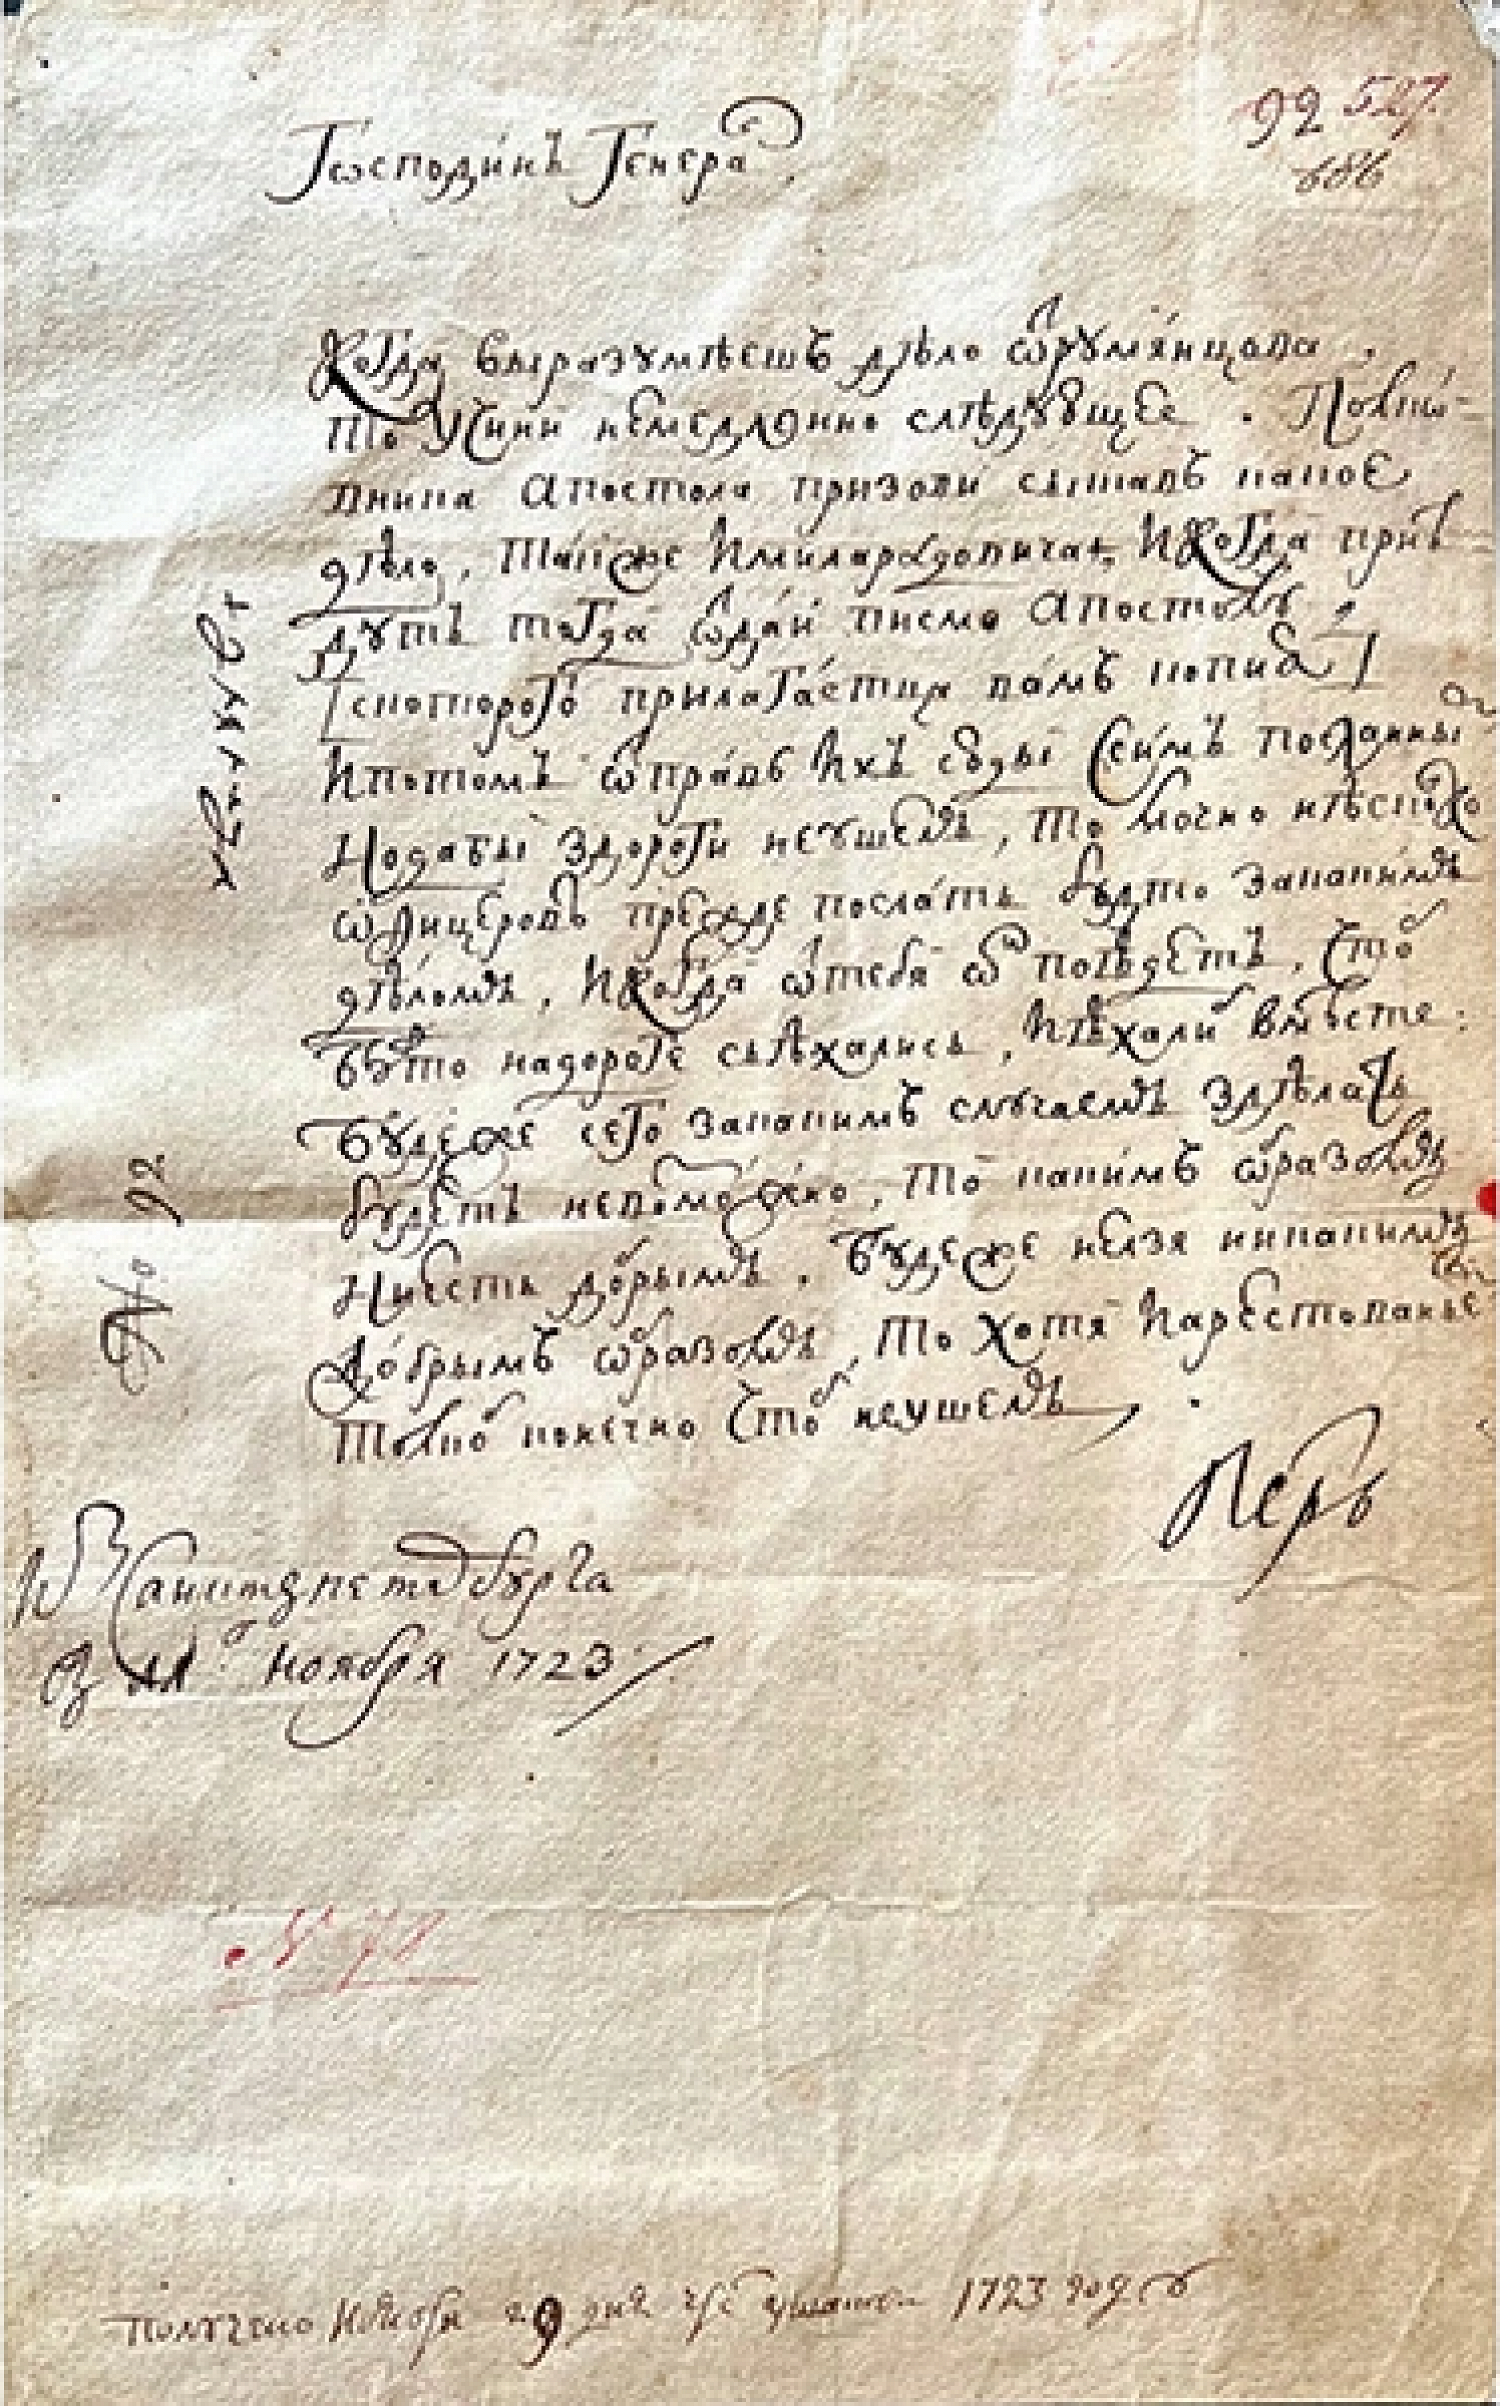 92 527.
686
Господинъ Генера л
Когда выразумѣешъ дѣло от румянцова.
то Учини немедлѣнно слѣдующее. Полков-
вника Апостола призови сыщавъ какое
дѣло, также и миларадовича, и когда прие
дутъ тогда отдай писмо Апостолу
[с которого прилагаетца вамъ копиа]
и потомъ отправь ихъ сюды с симъ посланны м
и дабы з дороги не ушелъ, то мочно нѣсколко
офицеровъ прежде послать будто за какимъ
дѣломъ, и когда от тебя он поѣдетъ, чтоб
буто на дороге съѣхались, и ѣхали вмѣсте:
буде же сего какимъ случаемъ здѣлать
будетъ невозможно, то какимъ образомъ
ни есть добрымъ. буде же нелзя ни какимъ
добрымъ образомъ, то хотя и арестованье м
толко конечно чтоб не ушелъ
Петръ
Из Санктъпетербурга
В 11 д. ноября 1723
No 92
№ 92
Получено Ноября 29 дня 1723 году